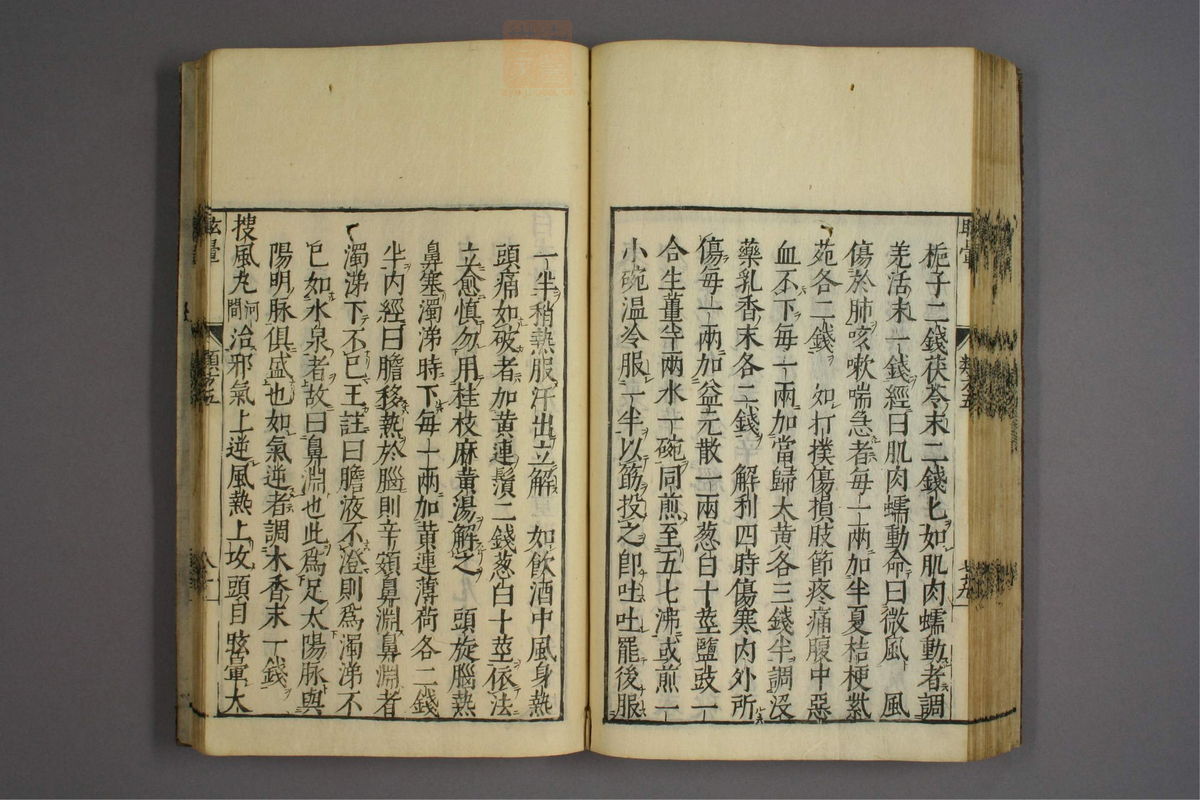 梔子二錢茯苓末二錢匕如肌肉蠕動者調
羌活末一錢經曰肌肉蠕動命曰微風 風
傷於肺咳嗽喘急者毎一兩加半夏桔梗紫
苑各二錢 如打撲傷損肢節疼痛腹中惡
血不下毎一兩加當歸大黄各三錢半調沒
藥乳香末各二錢 解利四時傷寒内外所
傷毎一兩加益元散一兩葱白十莖鹽豉一
合生薑半兩水一碗同煎至五七沸或煎一
小碗温冷服一半以筯投之卽吐吐罷後服
一半稍熱服汗出立解 如飲酒中風身熱
頭痛如破者加黄連鬚二錢葱白十莖依法
立愈慎勿用桂枝麻黄湯解之 頭旋腦熱
鼻塞濁涕時下毎一兩加黄連薄荷各二錢
半内經曰膽移熱於腦則辛頞鼻淵鼻淵者
濁涕下不已王註曰膽液不澄則爲濁涕不
已如水泉者故曰鼻淵也此爲足太陽脉與
陽明脉俱盛也如氣逆者調木香末一錢
搜風丸河間治邪氣上逆風熱上攻頭目眩暈大
眩暈